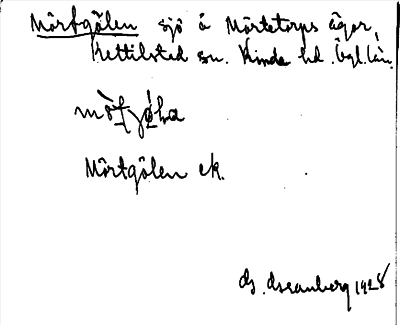 Mörtgölen sjö å Mörtetorps ägor,
Kettilstad sn. Kinda hd. Ögl. län.
Mörtgölen ek.
1928